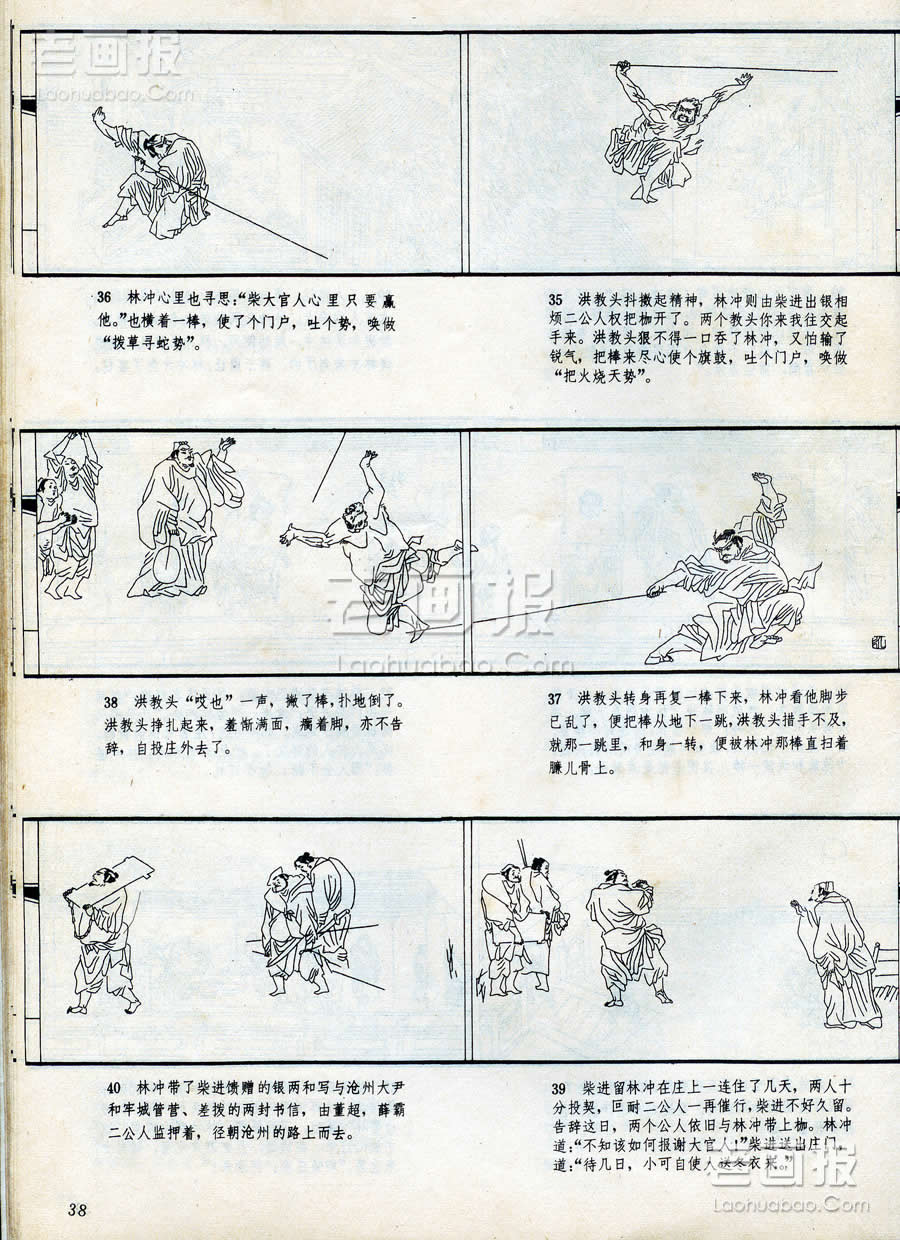 老画报
Laohuabao.Com
35 洪教头抖擞起精神，林冲则由柴进出银相
烦二公人权把枷开了。两个教头你来我往交起
手来。洪教头狠不得一口吞了林冲，又怕输了
锐气，把棒来尽心使个旗鼓，吐个门户，唤做
“把火烧天势”。
36 林冲心里也寻思：“柴大官人心里只要赢
他。”也横着一棒，使了个门户，吐个势，唤做
“拨草寻蛇势”。
老画报
Laohuabao.Com
37 洪教头转身再复一棒下来，林冲看他脚步
已乱了，便把棒从地下一跳，洪教头措手不及，
就那一跳里，和身一转，便被林冲那棒直扫着
臁儿骨上。
38 洪教头“哎也”一声，撇了棒，扑地倒了。
洪教头挣扎起来，羞惭满面，瘸着脚，亦不告
辞，自投庄外去了。
39 柴进留林冲在庄上一连住了几天，两人十
分投契，叵耐二公人一再催行，柴进不好久留。
告辞这日，两个公人依旧与林冲带上枷。林冲
道：“不知该如何报谢大官人！”柴进送出庄门，
道：“待几日，小可自使人送冬衣来。”
40 林冲带了柴进馈赠的银两和写与沧州大尹
和牢城管营、差拨的两封书信，由董超，薛霸
二公人监押着，径朝沧州的路上而去。
老画报
Laohuabao.Com
38